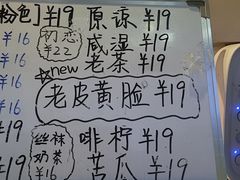 粉色】¥19 原谅¥19
¥16 初恋¥22 咸湿¥19
¥16 new 老茶¥19
老皮黄脸¥19
丝袜奶茶¥16 啡柠¥19
苦瓜¥19